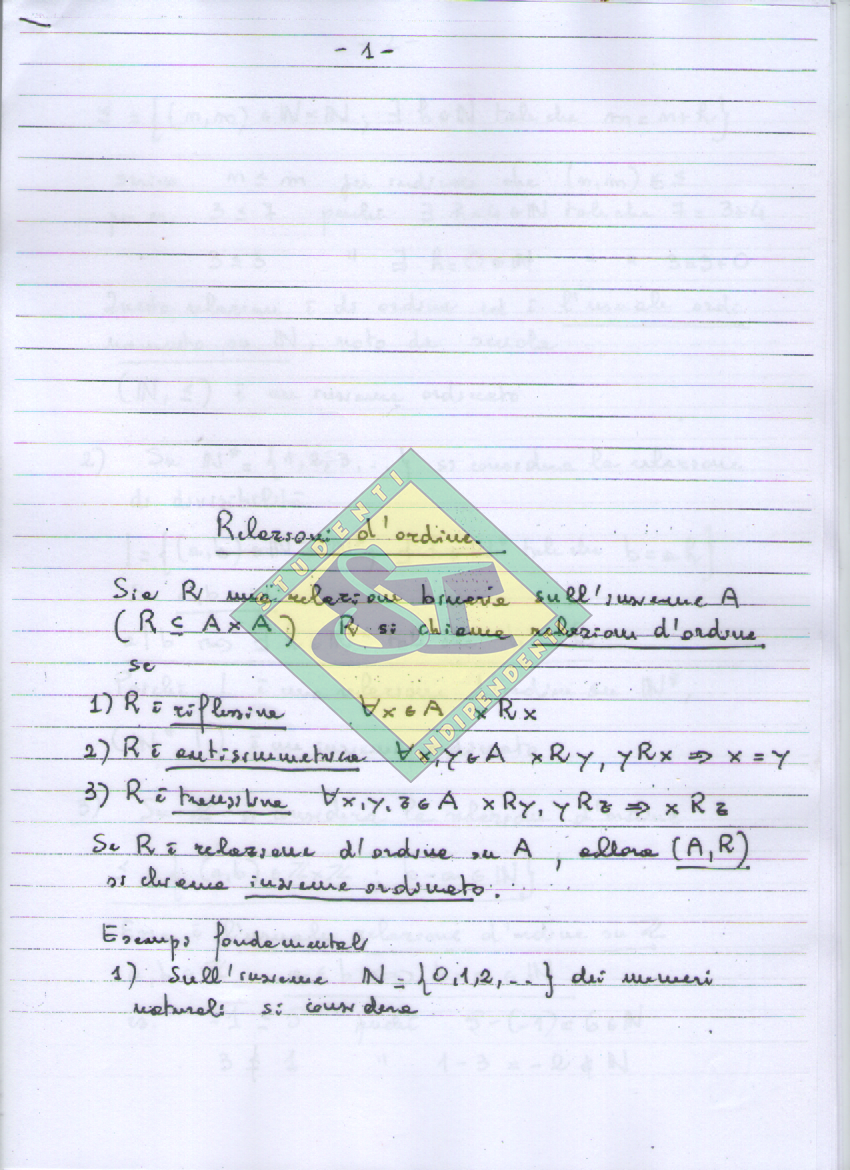 - 1 -
Relazioni d'ordine.
Sia R una relazione binaria sull'insieme A
(R ⊆ A x A) R si chiama relazione d'ordine
se
1) R è riflessiva ∀x ∈ A x R x
2) R è antisimmetrica ∀x, y ∈ A x R y, y R x ⇒ x = y
3) R è transitiva ∀x, y, z ∈ A x R y, y R z ⇒ x R z
Se R è relazione d'ordine su A, allora (A, R)
si chiama insieme ordinato.
Esempi fondamentali
1) Sull'insieme N = {0, 1, 2, ...} dei numeri
naturali si considera
STUDENTI
SI
INDIPENDENTI